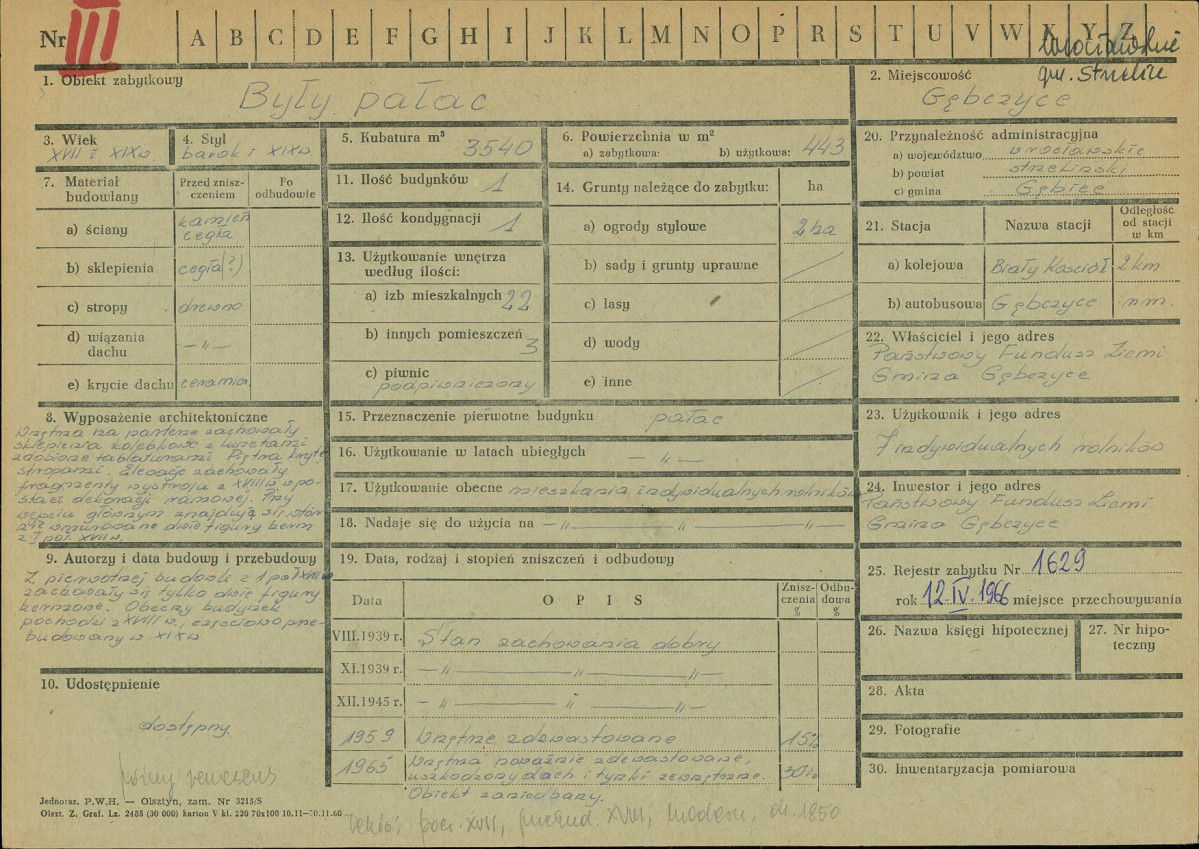 Nr III A B C D E F G H I J K L M N O P R S T U V W X Y Z
Wrocławskie
gm. Strzelin
1. Obiekt zabytkowy
Były pałac
2. Miejscowość
Gębczyce
3. Wiek
XVII i XIX w.
4. Styl
barok i XIX w.
5. Kubatura m³ 3540
6. Powierzchnia w m²
a) zabytkowa: b) użytkowa: 443
20. Przynależność administracyjna
a) województwo wrocławskie
b) powiat strzeliński
c) gmina Gębice
7. Materiał budowlany
Przed zniszczeniem
Po odbudowie
a) ściany kamień cegła
b) sklepienia cegła (?)
c) stropy drewno
d) wiązania dachu — „ —
e) krycie dachu ceramicz.
11. Ilość budynków 1
12. Ilość kondygnacji 1
13. Użytkowanie wnętrza według ilości:
a) izb mieszkalnych 22
b) innych pomieszczeń 3
c) piwnic podpiwniczony
14. Grunty należące do zabytku: ha
a) ogrody stylowe 2 ha
b) sady i grunty uprawne
c) lasy
d) wody
e) inne
21. Stacja Nazwa stacji Odległość od stacji w km
a) kolejowa Biały Kościół 2 km
b) autobusowa Gębczyce n m.
22. Właściciel i jego adres
Państwowy Fundusz Ziemi
Gmina Gębczyce
8. Wyposażenie architektoniczne
Wnętrza na parterze zachowały
sklepienia kolebkowe z lunetami
zdobione tablaturami. Piętra kryte
stropami. Elewacje zachowały
fragmenty wystroju z XVIII w w po-
staci dekoracji ramowej. Przy
wejściu głównym znajdują się wtór-
nie wmurowane dwie figury herm
z I poł. XVII w.
15. Przeznaczenie pierwotne budynku pałac
16. Użytkowanie w latach ubiegłych — „ —
17. Użytkowanie obecne mieszkania indywidualnych rolników
18. Nadaje się do użycia na — „ — „ — „ —
23. Użytkownik i jego adres
7 indywidualnych rolników
24. Inwestor i jego adres
Państwowy Fundusz Ziemi
Gmina Gębczyce
9. Autorzy i data budowy i przebudowy
Z pierwotnej budowli z 1 poł XVII w
zachowały się tylko dwie figury
hermowe. Obecny budynek
pochodzi z XVIII w., częściowo prze-
budowany w XIX w
19. Data, rodzaj i stopień zniszczeń i odbudowy
Data OPIS Zniszczenia % Odbudowa %
VIII.1939 r. Stan zachowania dobry
XI.1939 r. — „ — „ — „ —
XII.1945 r. — „ — „ — „ —
1959 Wnętrze zdewastowane 15%
1965 Wnętrza poważnie zdewastowane,
uszkodzony dach i tynki zewnętrzne. 30%
Obiekt zaniedbany.
25. Rejestr zabytku Nr 1629
rok 12.IV.1966 miejsce przechowywania
26. Nazwa księgi hipotecznej
27. Nr hipoteczny
28. Akta
29. Fotografie
30. Inwentaryzacja pomiarowa
10. Udostępnienie
dostępny.
późny renesans
Jednoraz. P.W.H. — Olsztyn, zam. Nr 3215/S
Olszt. Z. Graf. Lz. 2485 (30 000) karton V kl. 220 70x100 10.11—30.11.60
pocz. XVII, przebud. XVIII, modern. ok. 1850